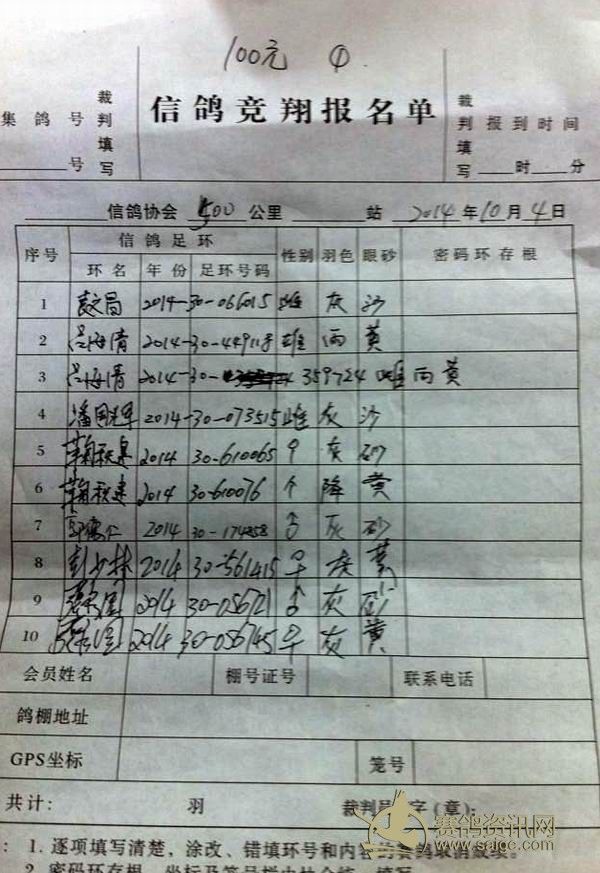 100元 ①
集鸽号 裁判填写 信鸽竞翔报名单 裁判填写 报到时间
号 时 分
信鸽协会 500 公里 站 2014 年 10 月 4 日
序号 信鸽足环 性别 羽色 眼砂 密码环存根
环名 年份 足环号码
1 2014-30-066015 雌 灰 沙
2 吕海清 2014-30-449118 雄 雨 黄
3 吕海清 2014-30- 359724 雌 雨 黄
4 潘国辉 2014-30-073515 雌 灰 沙
5 2014 30-610065 ♀ 灰 砂
6 2014 30-610076 绛 黄
7 2014 30-174858 ♂ 灰 砂
8 彭少林 2014 30-561415 灰 黄
9 2014 30-056721 ♂ 灰 砂
10 2014 30-056745 灰 黄
会员姓名 棚号证号 联系电话
鸽棚地址
GPS坐标 笼号
共计: 羽 裁判员 字(章):
: 1. 逐项填写清楚,涂改、错填环号和内容的赛鸽取消成绩。
赛鸽资讯网
www.saige.com